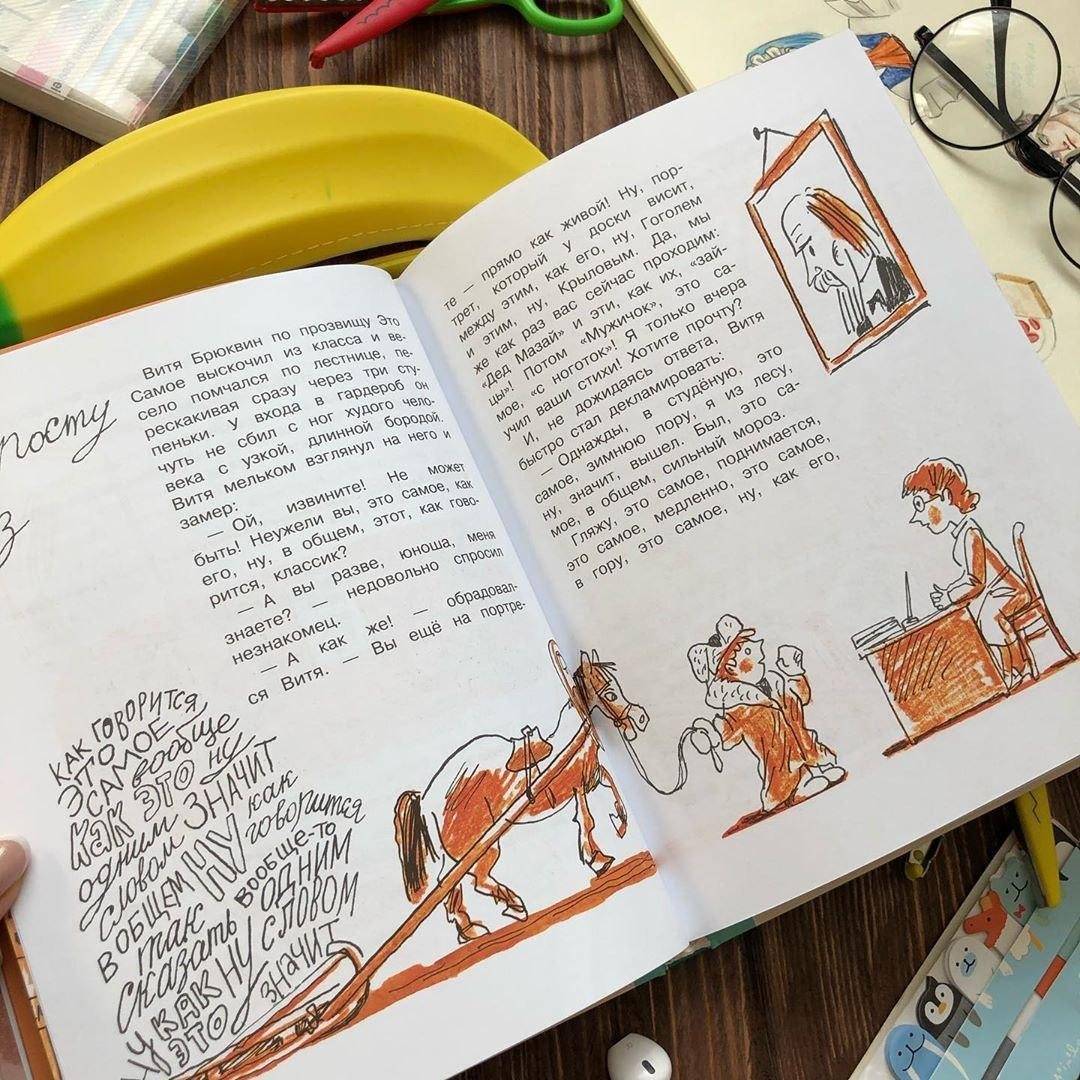 посту
з
Витя Брюквин по прозвищу Это
Самое выскочил из класса и ве-
село помчался по лестнице, пе-
рескакивая сразу через три сту-
пеньки. У входа в гардероб он
чуть не сбил с ног худого чело-
века с узкой, длинной бородой.
Витя мельком взглянул на него и
замер:
— Ой, извините! Не может
быть! Неужели вы, это самое, как
его, ну, в общем, этот, как гово-
рится, классик?
— А вы разве, юноша, меня
знаете? — недовольно спросил
незнакомец.
— А как же! — обрадовал-
ся Витя. — Вы ещё на портре-
КАК ГОВОРИТСЯ
ЭТО
САМОЕ
вообще
КАК ЭТО НУ
одним ЗНАЧИТ
словом
В ОБЩЕМ НУ как
говорится
так
сказать вообще-то
ОДНИМ
НУ СЛОВОМ
КАК
ЭТО ЗНАЧИТ
те — прямо как живой! Ну, пор-
трет, который у доски висит,
между этим, как его, ну, Гоголем
и этим, ну, Крыловым. Да, мы
же как раз вас сейчас проходим:
«Дед Мазай» и эти, как их, «зай-
цы»! Потом «Мужичок», это са-
мое, «с ноготок»! Я только вчера
учил ваши стихи! Хотите прочту?
И, не дожидаясь ответа, Витя
быстро стал декламировать:
— Однажды, в студёную, это
самое, зимнюю пору, я из лесу,
ну, значит, вышел. Был, это са-
мое, в общем, сильный мороз.
Гляжу, это самое, поднимается,
это самое, медленно, это самое,
в гору, это самое, ну, как его,